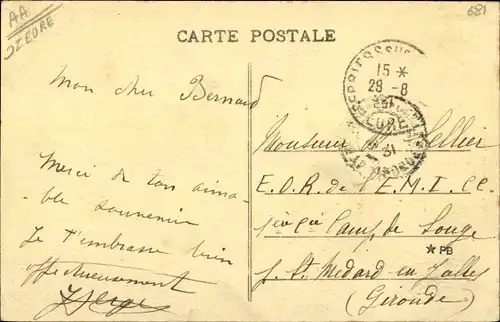 AA
27 EURE
681
CARTE POSTALE
PERRIERS SUR
15 *
29 - 8
31
EURE
Mon cher Bernard
Merci de ton aima-
ble souvenir
Je t'embrasse bien
affectueusement
Serge
Monsieur B. Tellier
E.O.R. de l'E.M.I.CC.
Camp de Souge
p. St Médard en Jalles
(Gironde)
*PB